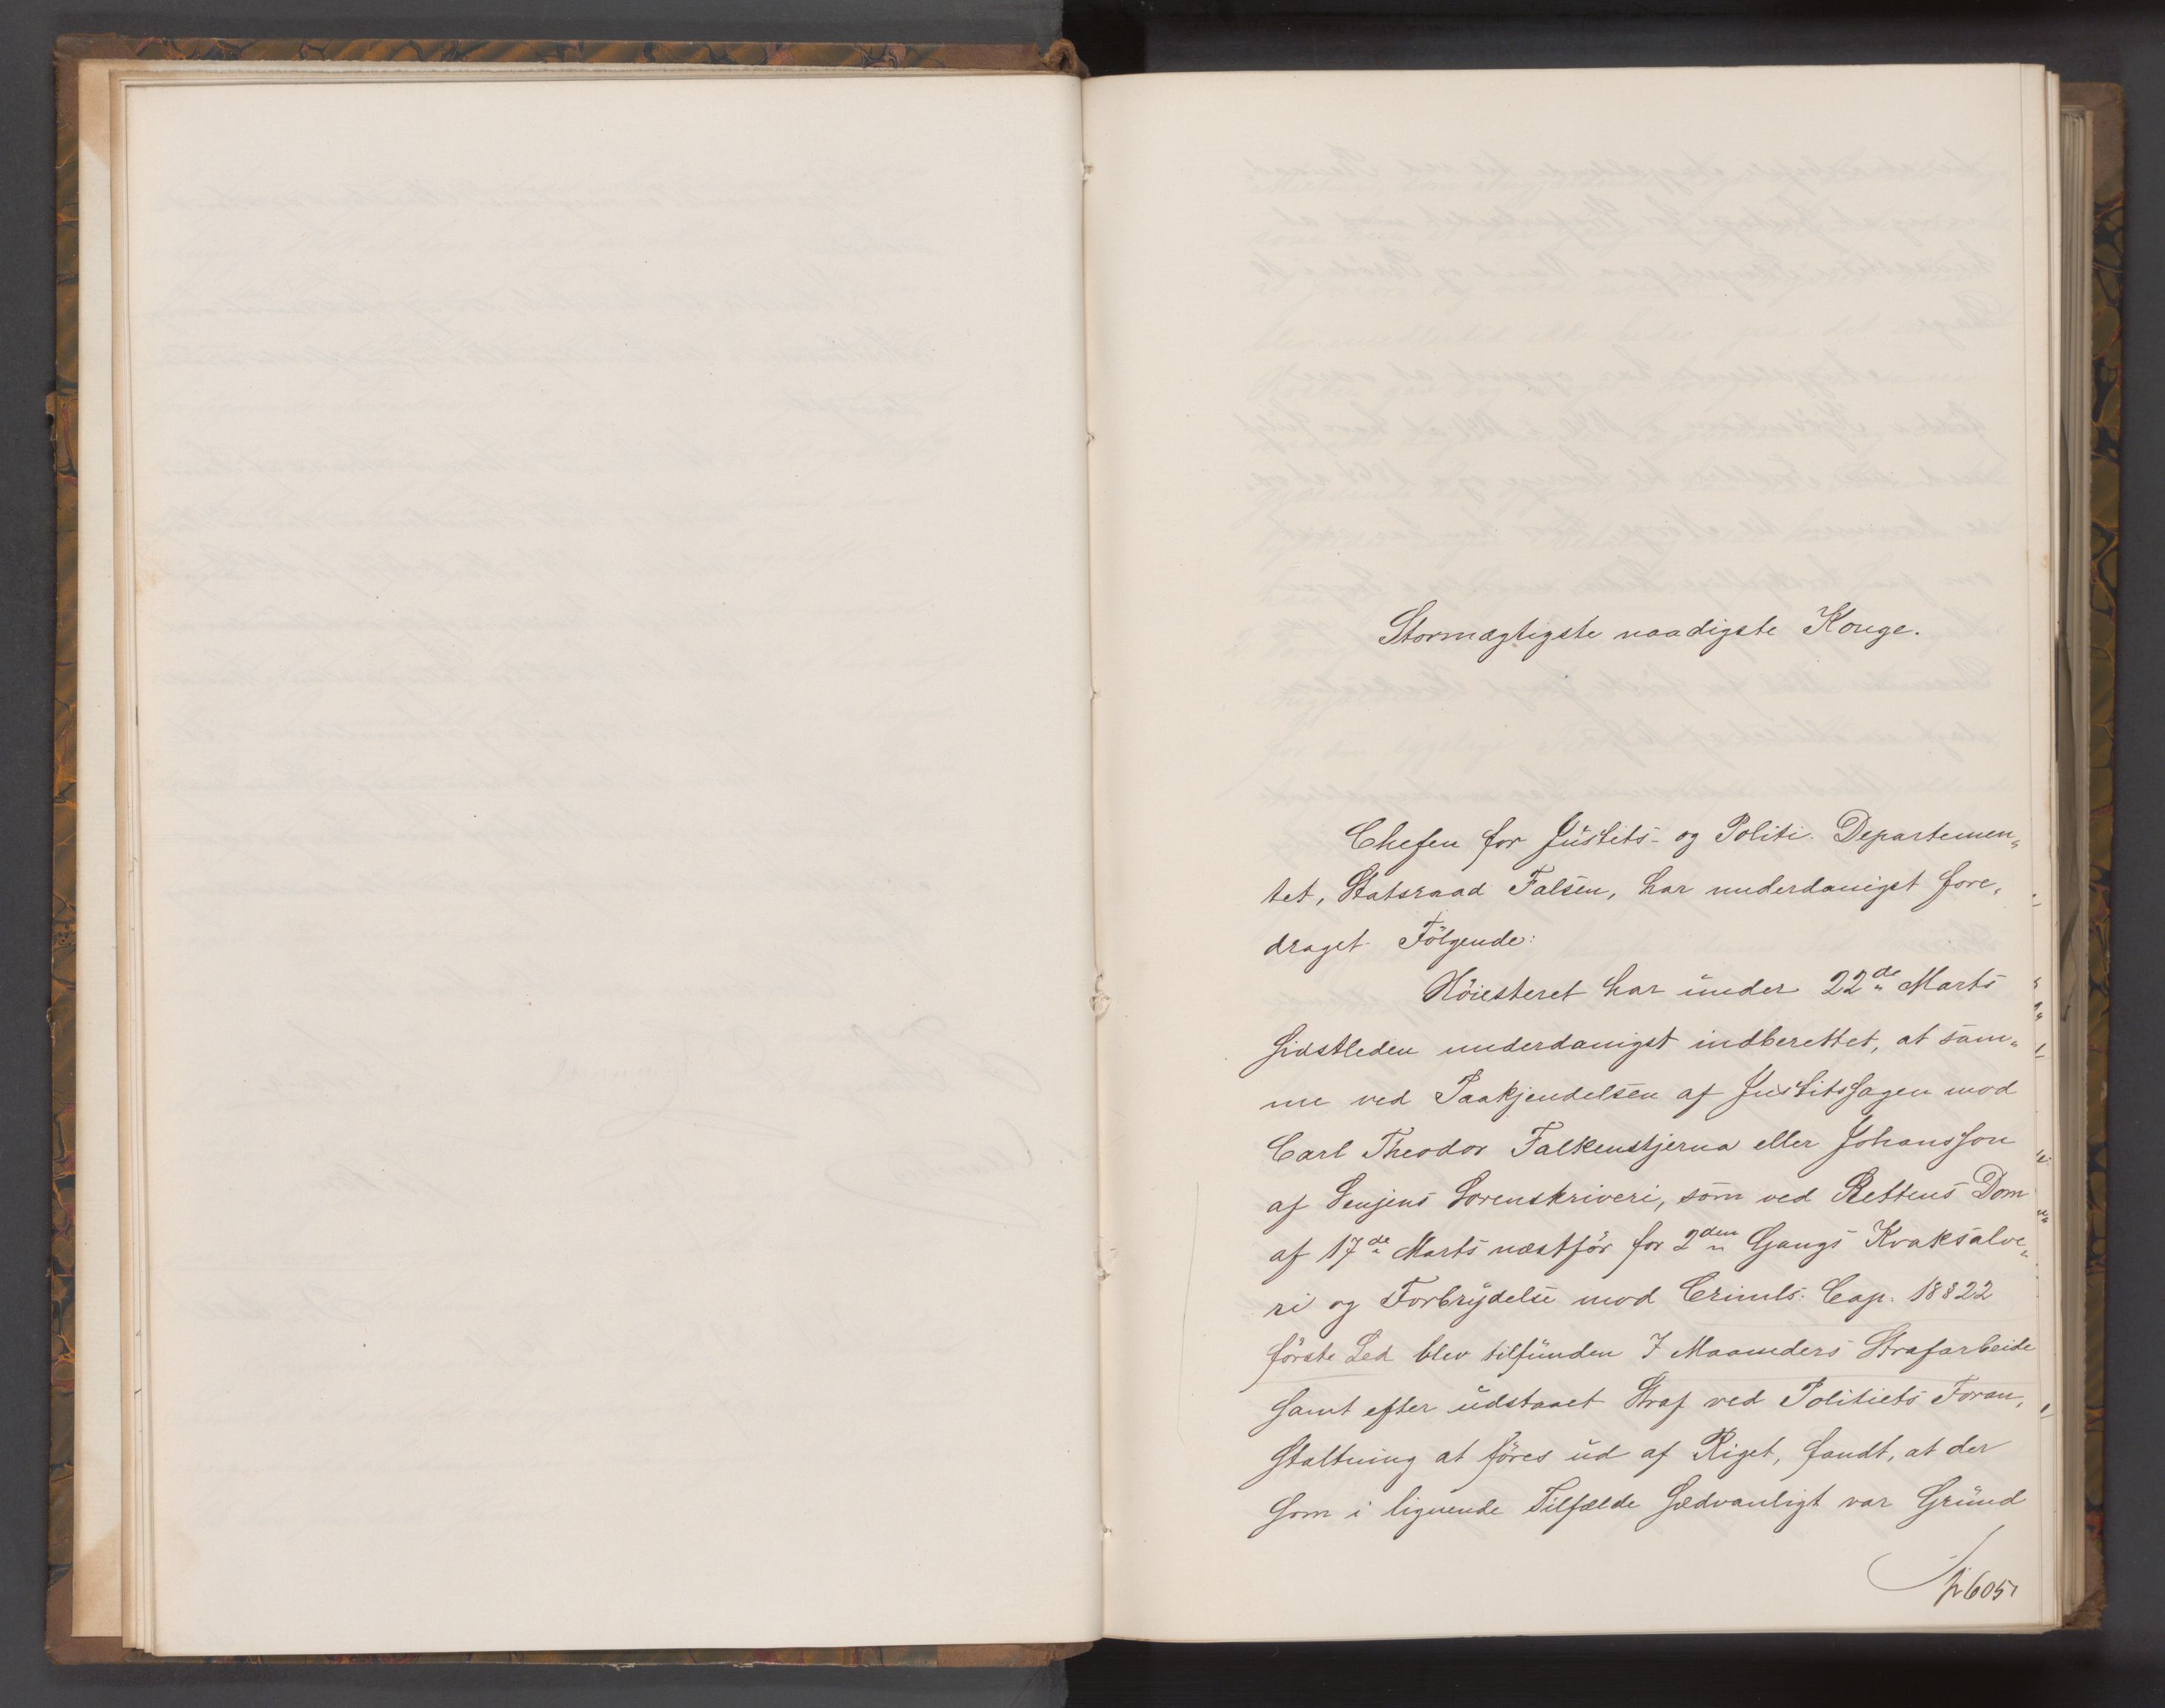 Stormægtigste naadigste Konge.
Chefen for Justits- og Politi-Departemen„
tet, Statsraad Falsen, har underdanigst fore„
draget Følgende:
Höiesteret har under 22de Marts
sidstleden underdanigst indberettet, at sam„
me ved Paakjendelsen af Justitssagen mod
Carl Theodor Falkenstjerna eller Johansson
af Senjens Sorenskriveri, som ved Rettens Dom
af 17de Marts næstför for 2den Gangs Kvaksalve„
ri og Forbrydelse mod Crimls: Cap. 18 § 22
förste Led blev tilfunden 7 Maaneders Strafarbeide
samt efter udstaaet Straf ved Politiets Foran„
staltning at föres ud af Riget, fandt, at der
som i lignende Tilfælde sædvanligt var Grund